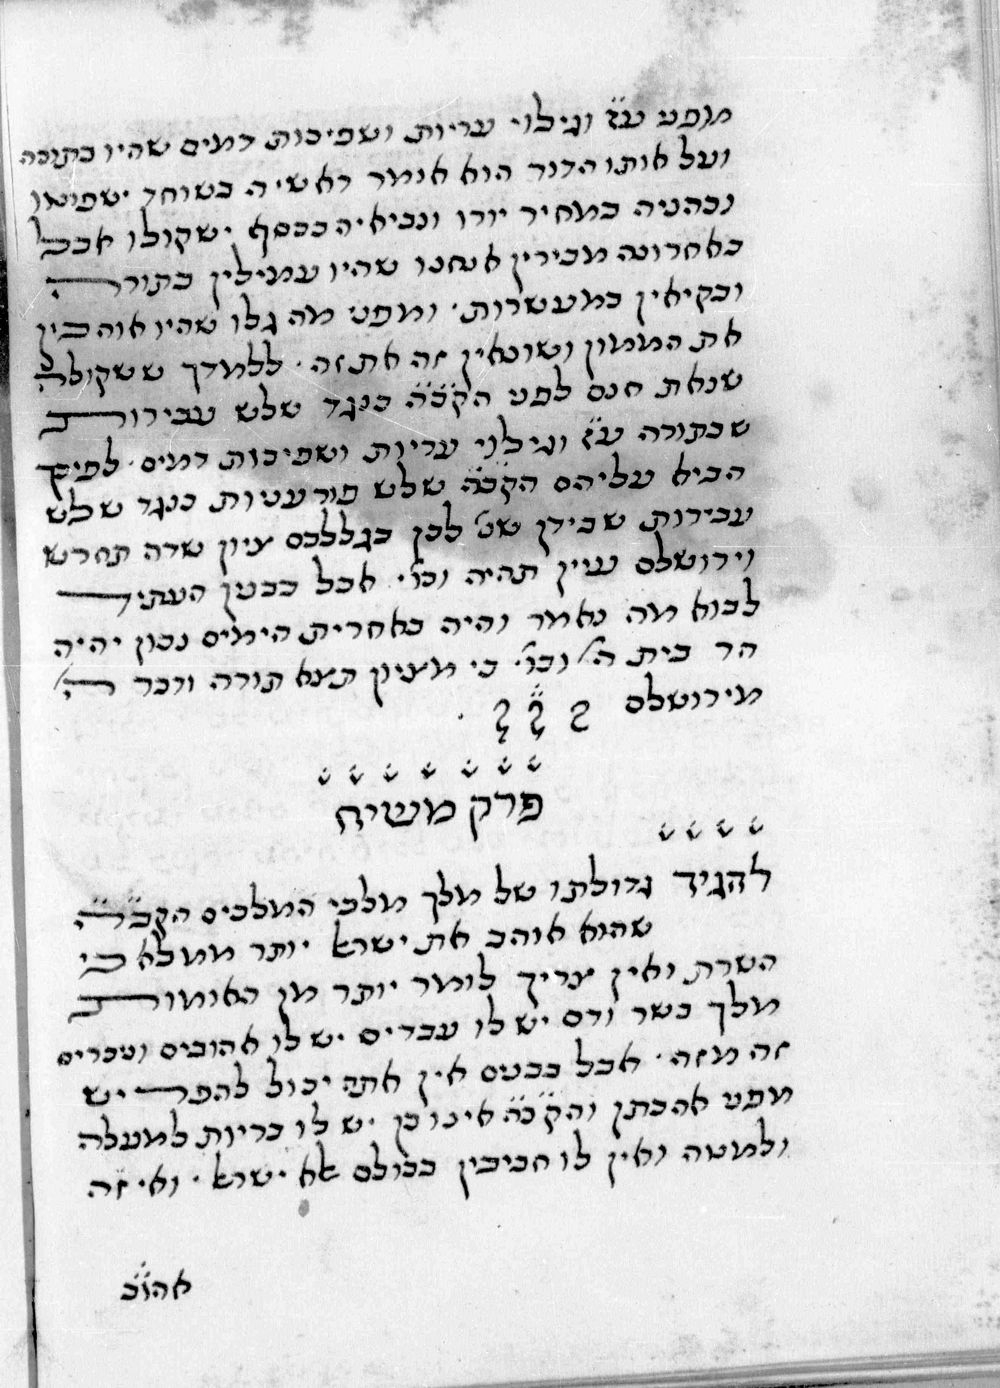 מפני ע״ז וגילוי עריות ושפיכות דמים שהיו בתוכה
ועל אותו הדור הוא אומר ראשיה בשוחד ישפוטו
וכהניה במחיר יורו ונביאיה בכסף ישקולו אבל
באחרונה מכירין אנחנו שהיו עמילין בתורה
ובקיאין במעשרות · ומפני מה גלו שהיו אוהבין
את הממון ושונאין זה את זה · ללמדך ששקולה
שנאת חנם לפני הקב״ה כנגד שלש עבירות
שבתורה ע״ז וגילוי עריות ושפיכות דמים · לפיכך
הביא עליהם הקב״ה שלש פורעניות כנגד שלש
עבירות שבידן שנ׳ לכן בגללכם ציון שדה תחרש
וירושלם עיין תהיה וכו׳ · אבל בבנין העתיד
לבוא מה נאמר והיה באחרית הימים נכון יהיה
הר בית ה׳ וכו׳ · כי מציון תצא תורה ודבר ה׳
מירושלם
פרק משיח
להגיד גדולתו של מלך מלכי המלכים הקב״ה
שהוא אוהב את ישראל יותר ממלאכי
השרת ואין צריך לומר יותר מן האומות
מלך בשר ודם יש לו עבדים יש לו אהובים ונכרים
זה מזה · אבל בבנים אין אתה יכול להפריש
מפני אהבתן והקב״ה אינו כן · יש לו בריות למעלה
ולמטה ואין לו חביבין בכולם אלא ישראל · ואי זה
אהוב